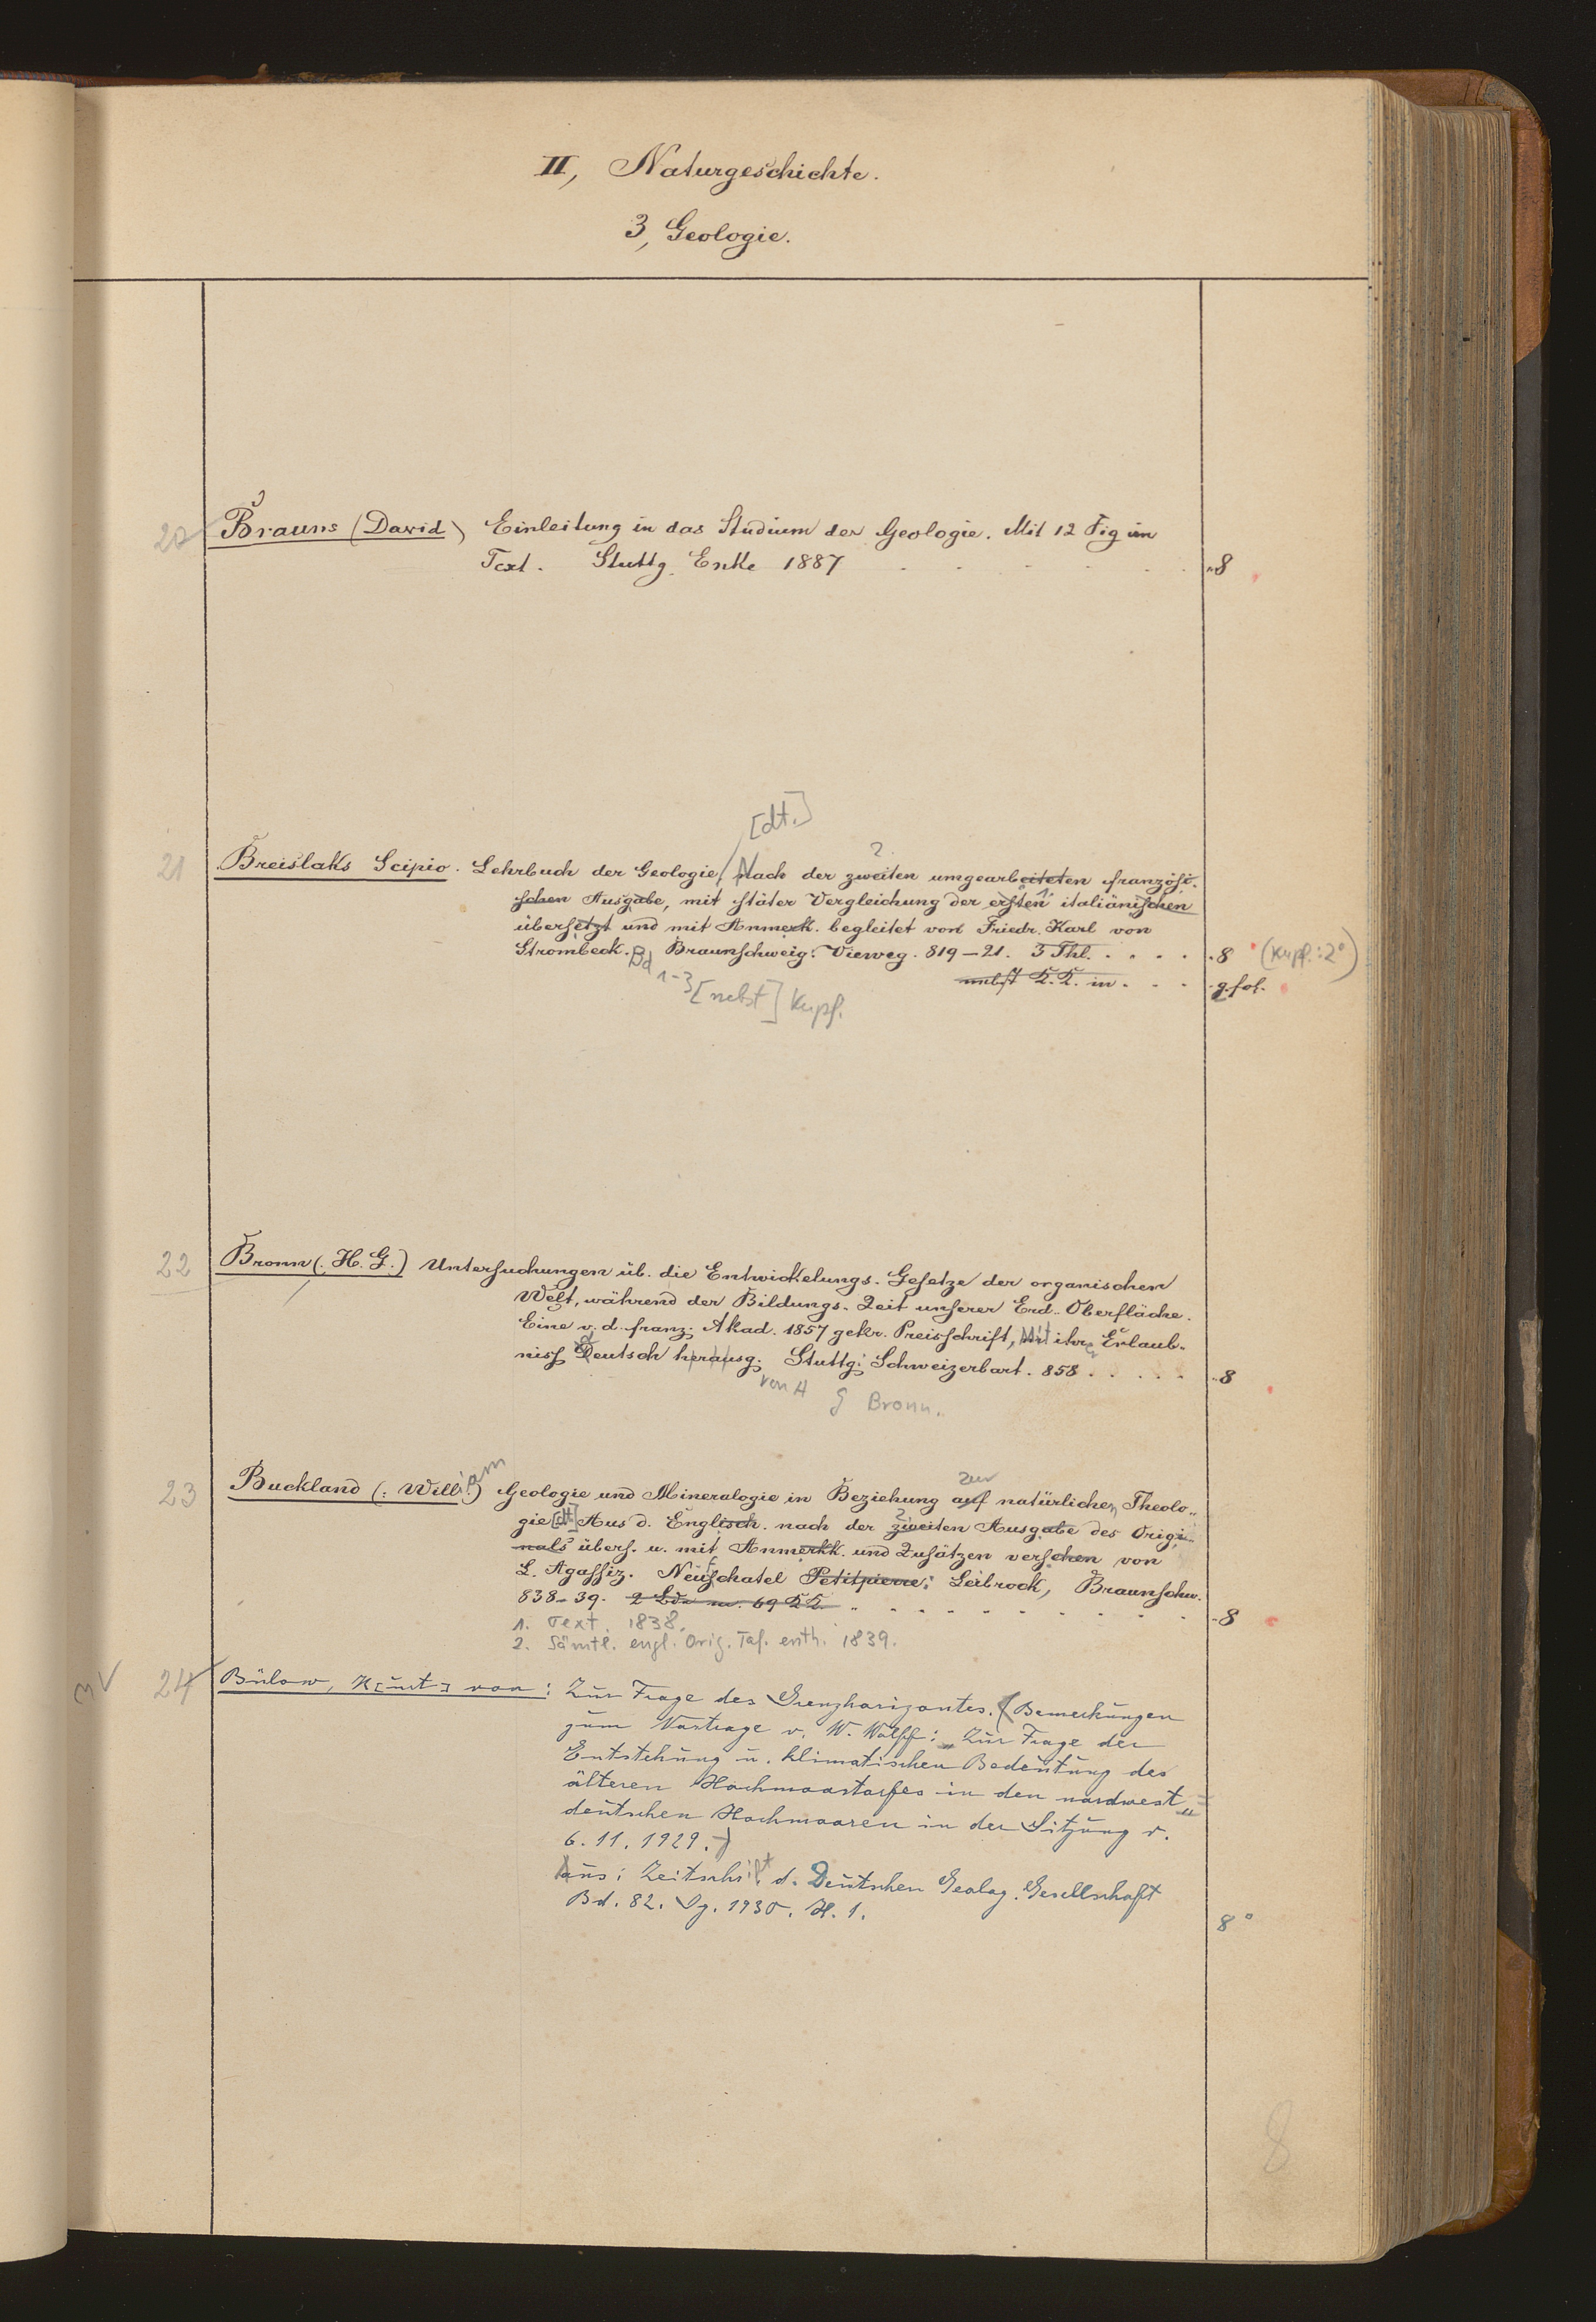 II, Naturgeschichte.
3, Geologie.
20 Brauns (David) Einleitung in das Studium der Geologie. Mit 12 Fig im
Text. Stuttg. Enke 1887 . . . . . . 8
[dt.]
21 Breislaks Scipio. Lehrbuch der Geologie, Nach der zweiten umgearbeiteten französi-
2.
schen Ausgabe, mit stäter Vergleichung der ersten italiänischen
1.
übersetzt und mit Anmerk. begleitet von Friedr. Karl von
Strombeck. Braunschweig. Vieweg. 819–21. 3 Thl. . . . . . 8 (Kupf.: 2°)
Bd 1-3 [nebst] Kupf.
nebst K.K. in . . . g. fol.
22 Bronn (H. G.) Untersuchungen üb. die Entwickelungs-Gesetze der organischen
Welt, während der Bildungs-Zeit unserer Erd-Oberfläche.
Eine v. d. franz. Akad. 1857 gekr. Preisschrift, Mit ihrer Erlaub-
niss Deutsch herausg. Stuttg: Schweizerbart. 858 . . . . . 8
von H G Bronn.
23 Buckland (: William) Geologie und Mineralogie in Beziehung auf natürlichen Theolo-
zur
gie [dt] Aus d. Englisch. nach der zweiten Ausgabe des Origi-
2.
nals übers. u. mit Anmerkk. und Zusätzen versehen von
L. Agassiz. Neufschatel Petitpierre: Leibrock, Braunschw.
838–39. 2 Bde m. 69 KK. . . . . . . 8
1. Text. 1838.
2. Sämtl. engl. Orig. Taf. enth. 1839.
24 Bülow, K[urt] von: Zur Frage des Grenzhorizontes. (Bemerkungen
zum Vortrage v. W. Wolff: „Zur Frage der
Entstehung u. klimatischen Bedeutung des
älteren Hochmoortorfes in den nordwest-
deutschen Hochmooren" in der Sitzung v.
6. 11. 1929.)
Aus: Zeitschrift d. Deutschen Geolog. Gesellschaft
Bd. 82. Jg. 1930. H. 1. 8°
8